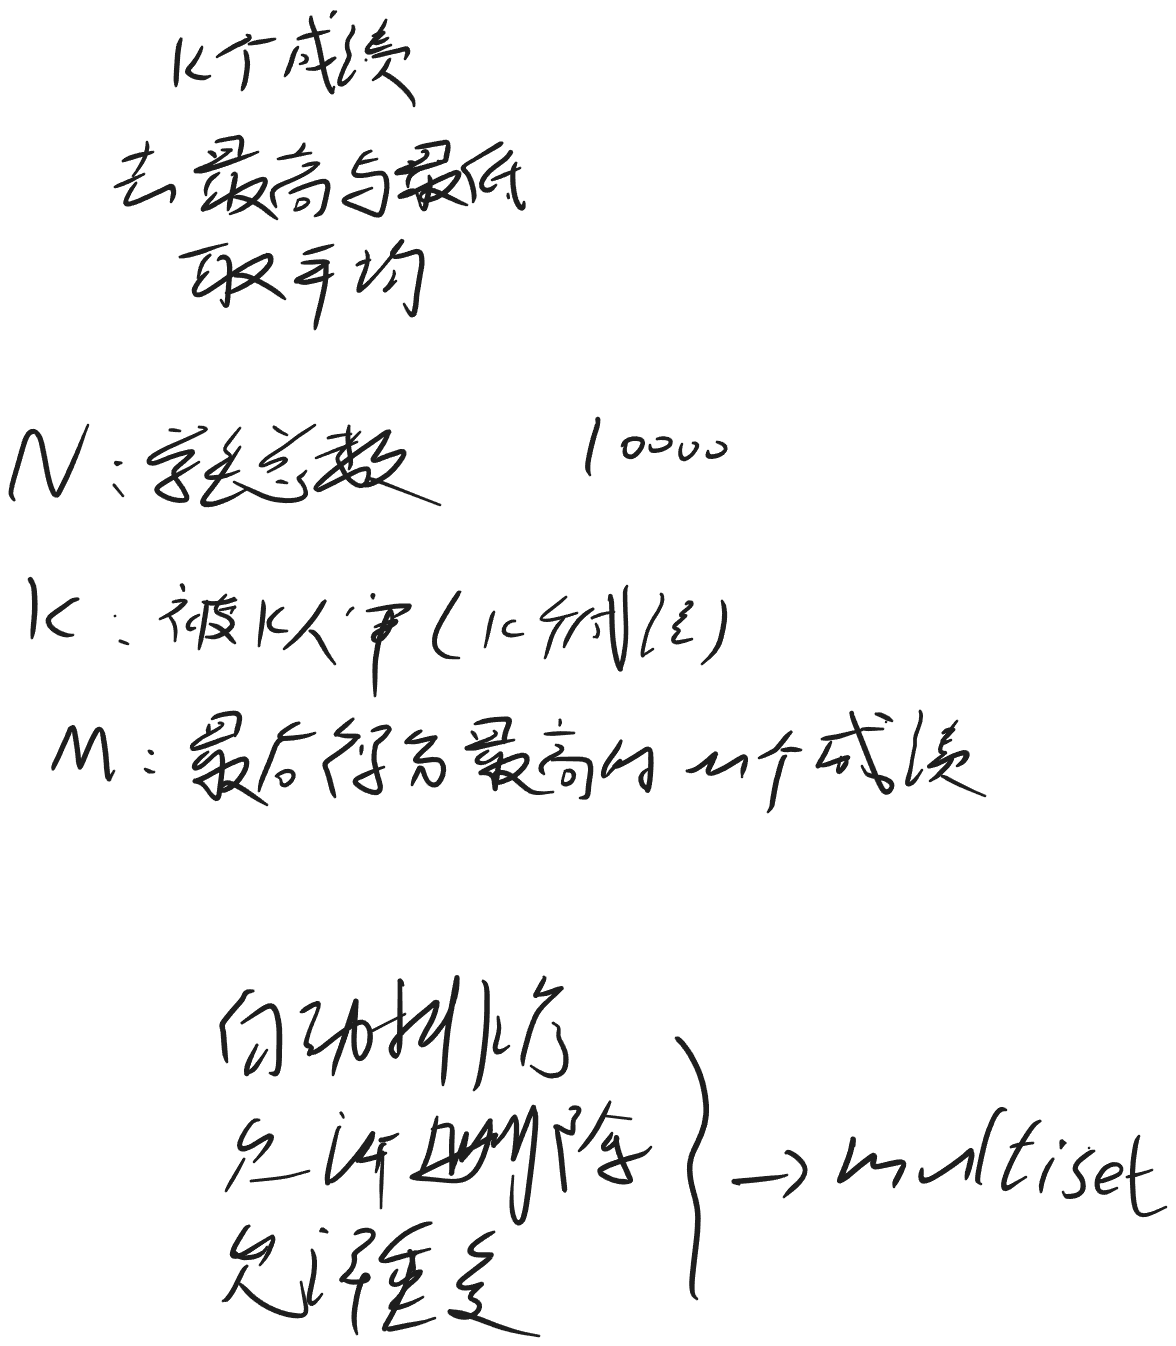 K个成绩
去最高与最低
取平均
N:学生总数 10000
K:被K人审(K个成绩)
M:最后得分最高的m个成绩
自动排序
允许删除
允许重复
→ multiset